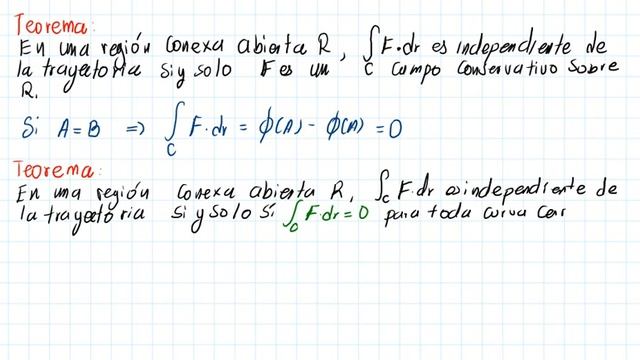 Teorema:
En una región conexa abierta R, ∫_C F·dr es independiente de
la trayectoria si y solo F es un campo conservativo sobre
R.
Si A=B ⇒ ∫_C F·dr = ϕ(A) - ϕ(A) = 0
Teorema:
En una región conexa abierta R, ∫_C F·dr es independiente de
la trayectoria si y solo si ∫_C F·dr = 0 para toda curva cerr